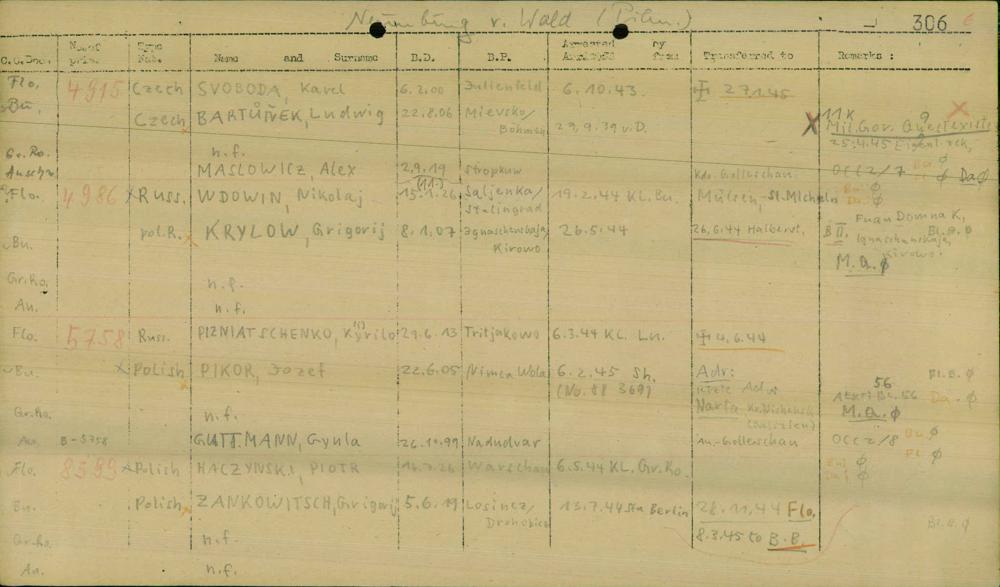 Neunburg v. Wald (Pilm.) 306
C.C. Doc. No. of pris. Type Nat. Name and Surname B.D. B.P. Arrested by Arrived from Transferred to Remarks :
Flo. 4915 Czech SVOBODA, Karel 6.2.00 Julienfeld 6.10.43. 27.1.45
Bu. Czech BARTŮŇEK, Ludwig 22.8.06 Mievsko/ Böhmen 29.9.39 v.D. X 11K Mil.Gov. X
25.4.45
Gr.Ro. n.f.
Auschw. MASLOWICZ, Alex 2.9.19 Stropkuw Kdo. Golleschau OCC2/7 Da Ø
(11.)
Flo. 4986 X Russ. WDOWIN, Nikolaj 15.1.26 Saljenka/ Stalingrad 19.2.44 KL. Bu. Mülsen-St.Micheln Ø
Bu. pol.R. KRYLOW, Grigorij 8.1.07 Ignaschewskaja Kirowo 26.5.44 26.6.44 Halberst. B II. Frau Domna K, Kirowo.
M.a. Ø
Gr.Ro. n.f.
Au. n.f.
Flo. 5758 Russ. PIZNIATSCHENKO, Kyrilo 29.6.13 Tritjakowo 6.3.44 KL. Lu. 4.6.44
Bu. X Polish PIKOR, Jozef 22.6.05 Nimca Wola 6.2.45 Sh. (No. 88 369) Adr: Bl.B. Ø
56 Da. Ø
Narta M.a. Ø
Gr.Ro. n.f.
Au. B-5758 GUTTMANN, Gyula 26.10.99 Nadudvar Au.-Golleschau OCC2/8 Bu. Ø
Fl Ø
Flo. 8599 X Polish HACZYNSKI, PIOTR 16.7.26 Warschau 6.5.44 KL. Gr.Ro. Ø
Bu. Polish ZANKOWITSCH, Grigorij 5.6.19 Losincz/ Drohobicz 13.7.44 Sta Berlin 28.11.44 Flo. Bl.B. Ø
8.3.45 to B.B.
Gr.Ro. n.f.
Au. n.f.